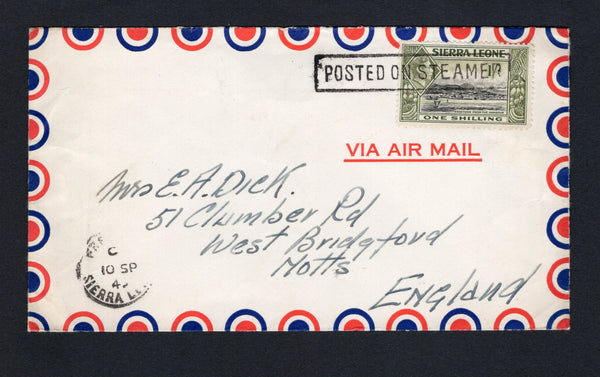 SIERRA LEONE
POSTED ON STEAMER
ONE SHILLING
VIA AIR MAIL
Mrs E. A. Dick.
51 Clumber Rd
West Bridgford
Notts
England
C
10 SP
SIERRA